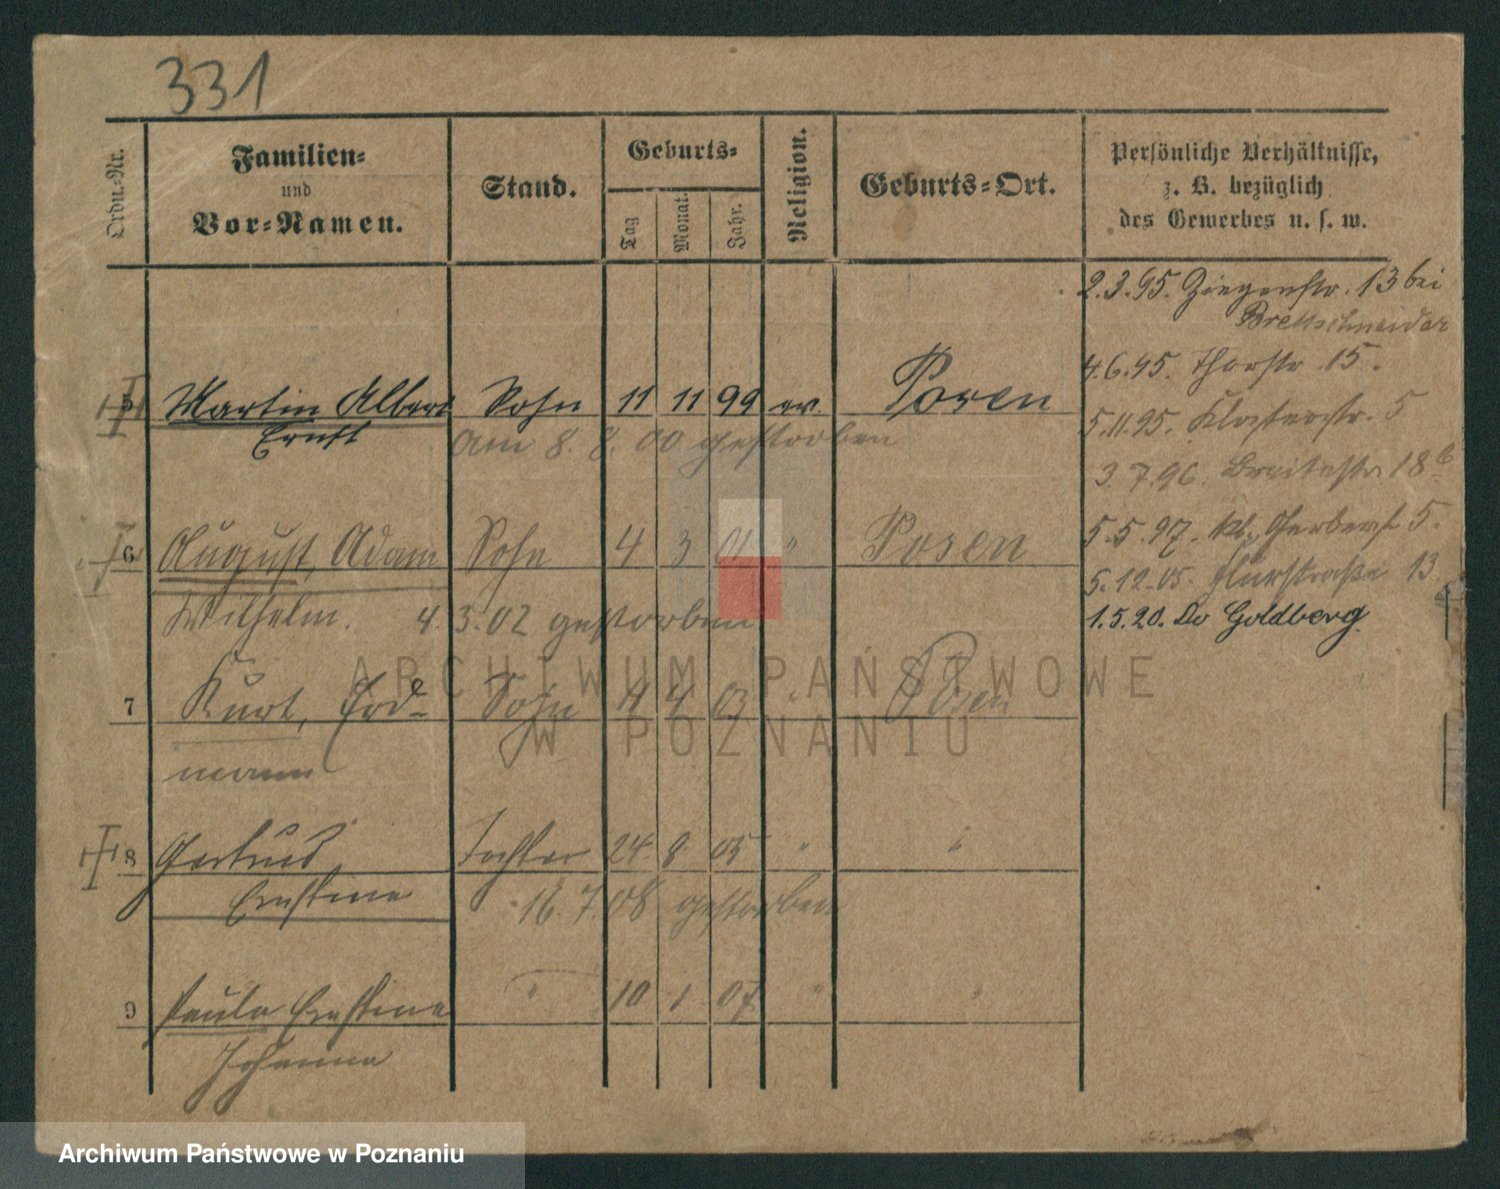 331
Ordn.-Nr.
Familien-
und
Vor-Namen.
Stand.
Geburts-
Tag
Monat.
Jahr.
Religion.
Geburts-Ort.
Persönliche Verhältnisse,
z. B. bezüglich
des Gewerbes u. s. w.
2.3.95. Ziegenstr. 13 bei
Bretschneider
4.6.95. Thorstr. 15.
5.11.95. Klosterstr. 5
3.7.96. Breitestr. 18b
5.5.97. kl. Gerberst. 5.
5.12.05. Flurstraße 13
1.5.20. Do Goldberg
5 Martin Albert Sohn 11 11 99 ev. Posen
Ernst am 8. 8. 00 gestorben
6 August, Adam Sohn 4 3 01 " Posen
Wilhelm. 4. 3. 02 gestorben
7 Kurt, Erd- Sohn 4 03 " Posen
mann
8 Gertrud Tochter 24 8 05 " "
Ernstine 16. 7. 08 gestorben
9 Paula Ernstine " 10 1 07 " "
Johanna
ARCHIWUM PAŃSTWOWE
W POZNANIU
Archiwum Państwowe w Poznaniu